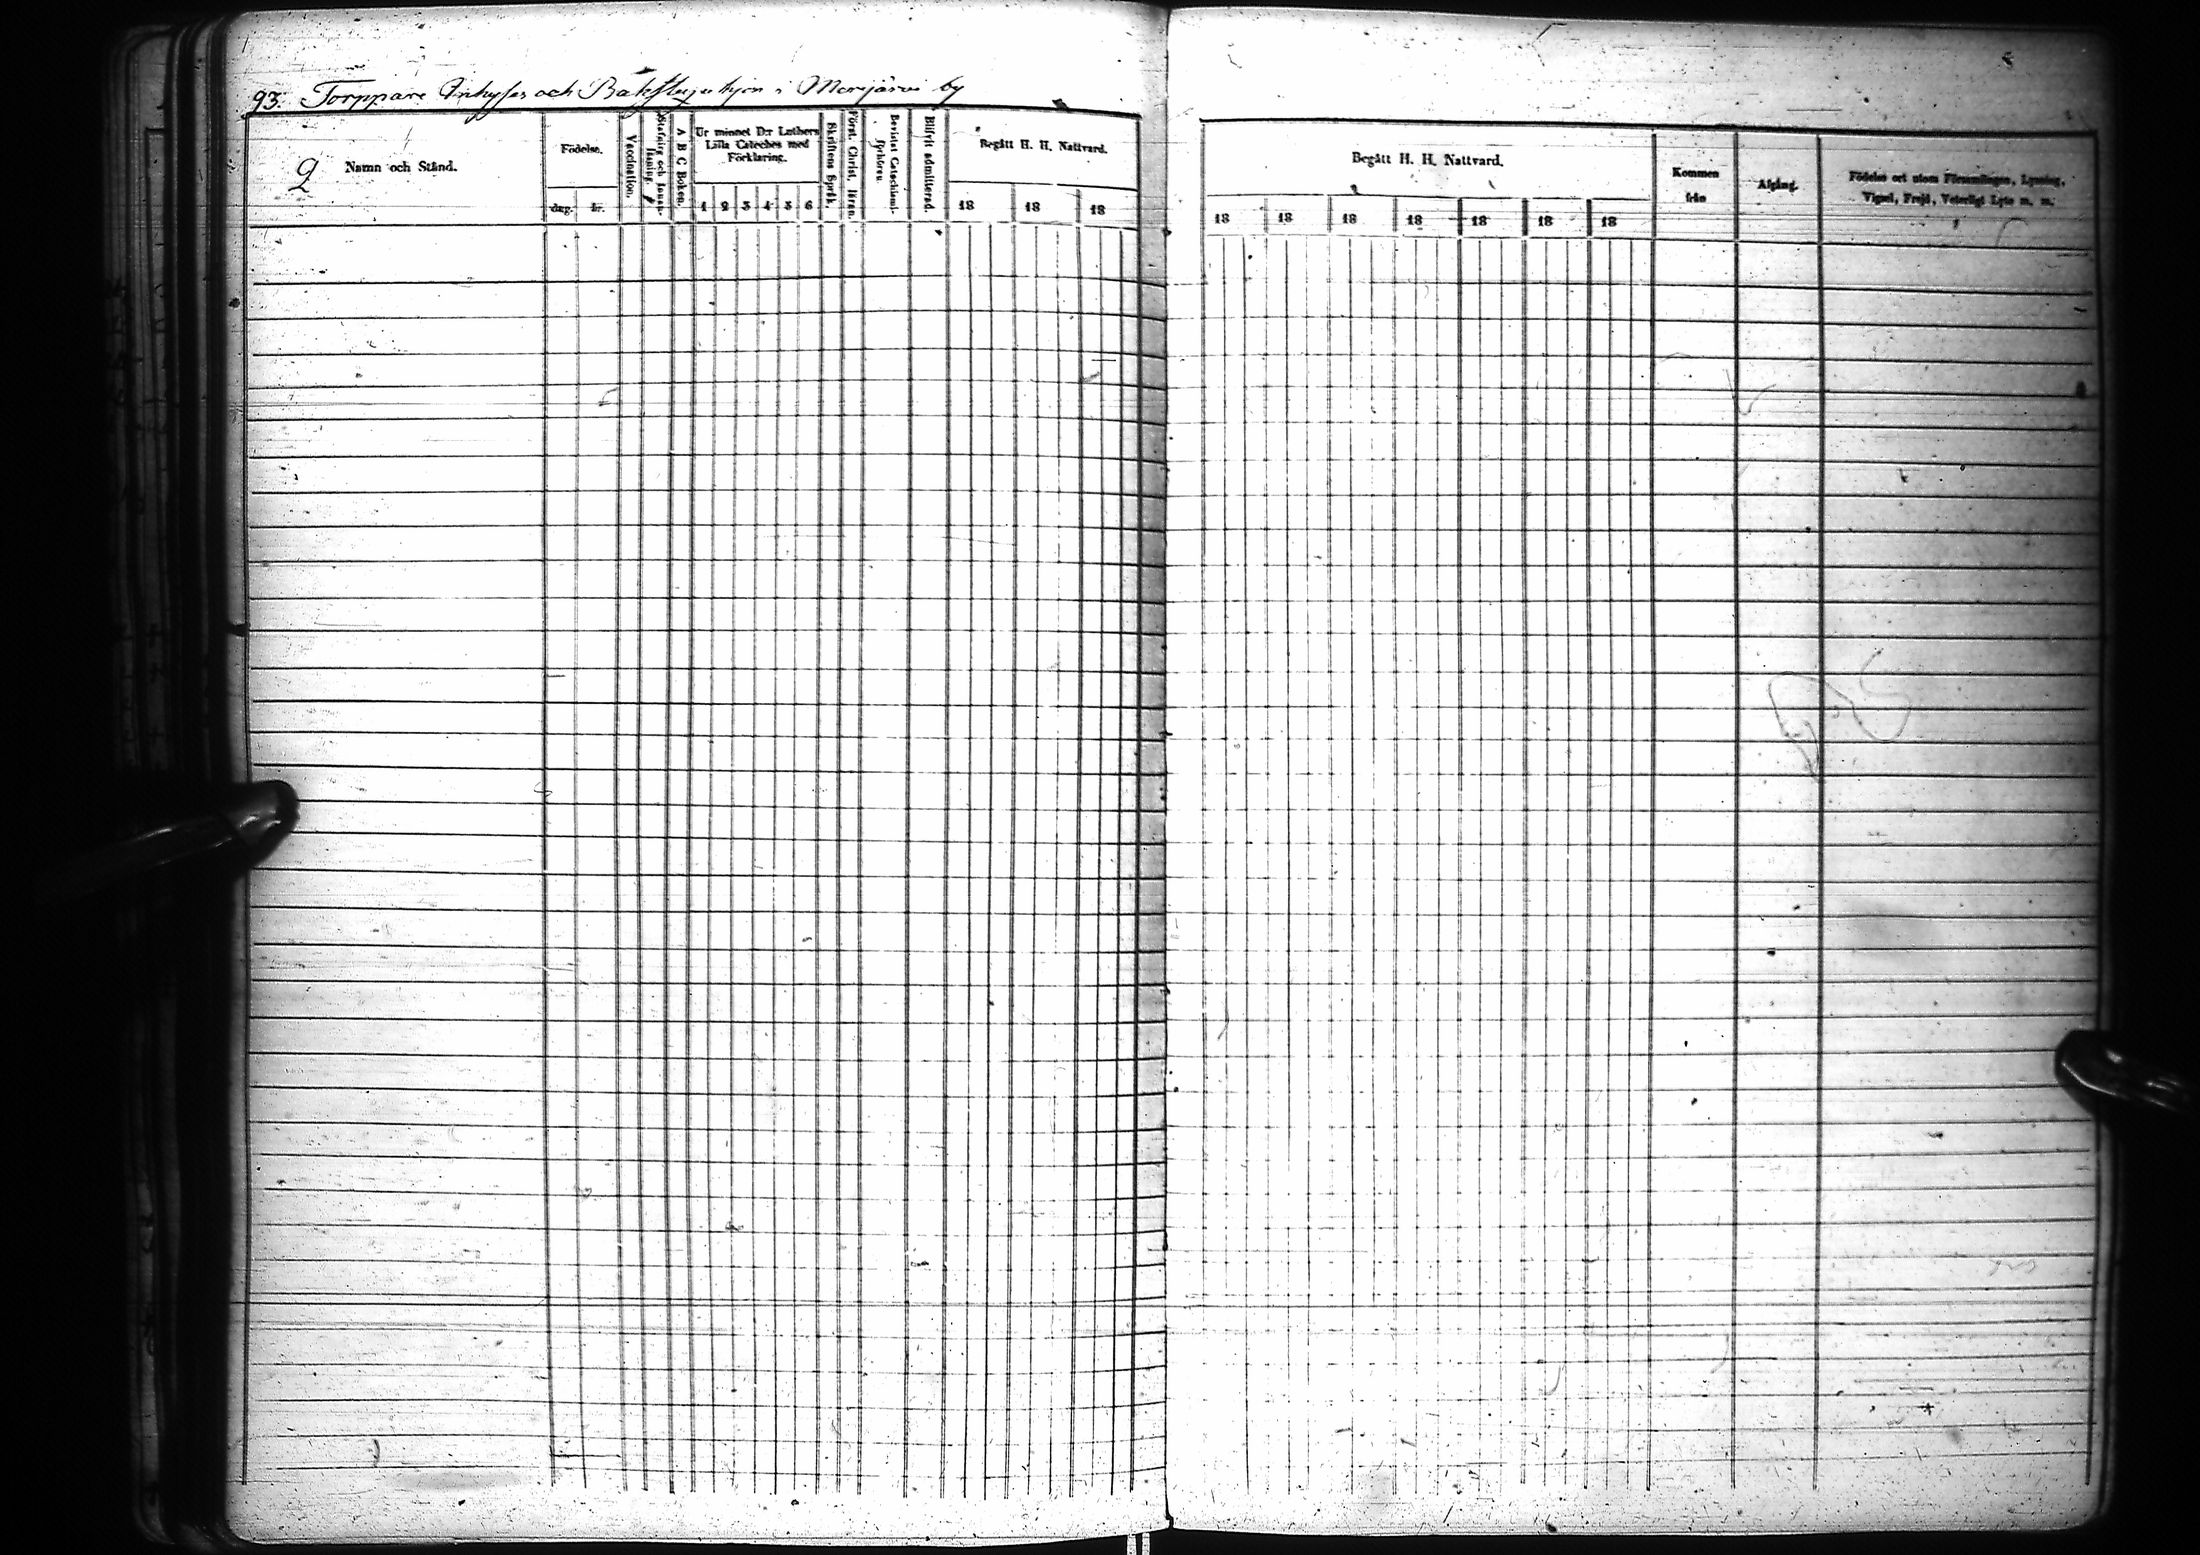 93. Torppare Inhyses och Backstuguhjon i Merijärvi by
2
Namn och Stånd.
Födelse.
dag. år.
Vaccination.
Stafning och Innanläsning.
A B C Boken.
Ur minnet D:r Luthers
Lilla Cateches med
Förklaring.
1 2 3 4 5 6
Skriftens Språk.
Först. Christ. läran.
Bevistat Catechismi-
förhören.
Blifvit admitterad.
Begått H. H. Nattvard.
18 18 18
Begått H. H. Nattvard.
18 18 18 18 18 18 18
Kommen
från
Afgång.
Födelse ort utom Församlingen, Lysning,
Vigsel, Frejd, Veterligt Lyte m. m.